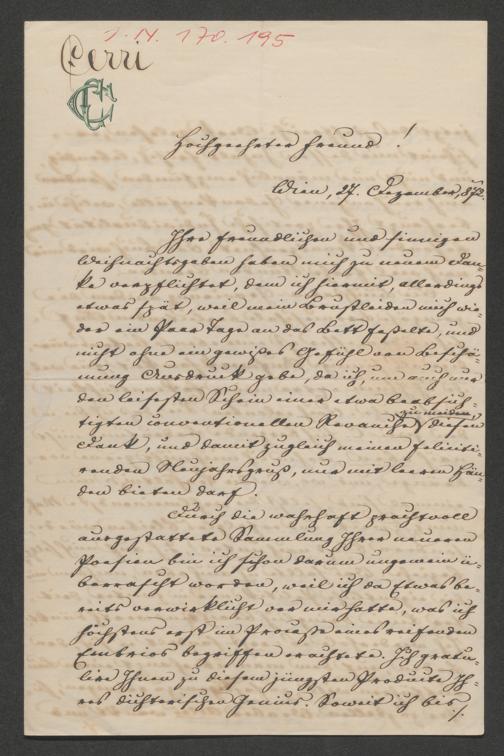 I. N. 170.195
Cerri
CC
Hochgeehrter Freund!
Wien, 27. Dezember, 872.
Ihre freundlichen und sinnigen
Weihnachtsgaben haben mich zu neuem Dan-
ke verpflichtet, dem ich hiermit, allerdings
etwas spät, weil mein Brustleiden mich wie-
der ein Paar Tage an das Bett fesselte, und
nicht ohne ein gewißes Gefühl von Beschä-
mung Ausdruck gebe, da ich, um auch nur
den leisesten Schein einer etwa beabsich-
tigten conventionellen Revanche zu meiden, diesen
Dank, und damit zugleich meinen feliciti-
renden Neujahrsgruß, nur mit leeren Hän-
den bieten darf.
Durch die wahrhaft prachtvoll
ausgestattete Sammlung Ihrer neueren
Poesien bin ich schon darum ungemein ü-
berrascht worden, weil ich da Etwas be-
reits verwirklicht vor mir hatte, was ich
höchstens erst im Prozeße eines reifenden
Embrios begriffen erachtete. Ich gratu-
lire Ihnen zu diesem jüngsten Producte Ih-
res dichterischen Genius. Soweit ich bis
./.